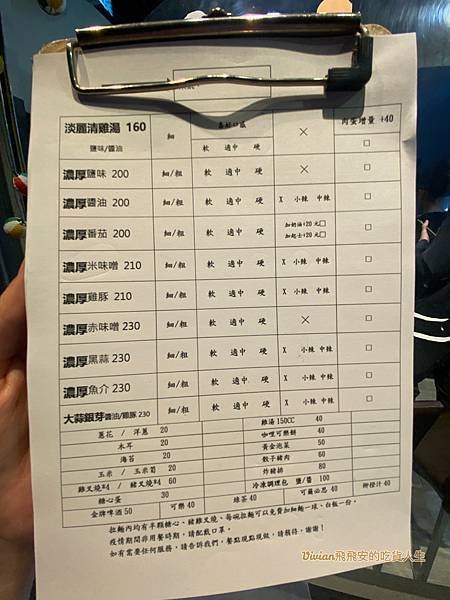 淡麗清雞湯 160 細 喜好口感 × 肉蛋增量 +40
鹽味/醬油 軟 適中 硬 □
濃厚鹽味 200 細/粗 軟 適中 硬 × □
濃厚醬油 200 細/粗 軟 適中 硬 X 小辣 中辣 □
濃厚番茄 200 細/粗 軟 適中 硬 加奶油+20元□ □
加起士+20元□
濃厚米味噌 210 細/粗 軟 適中 硬 X 小辣 中辣 □
濃厚雞豚 210 細/粗 軟 適中 硬 X 小辣 中辣 □
濃厚赤味噌 230 細/粗 軟 適中 硬 × □
濃厚黑蒜 230 細/粗 軟 適中 硬 X 小辣 中辣 □
濃厚魚介 230 細/粗 軟 適中 硬 X 小辣 中辣 □
大蒜銀芽醬油/雞豚 230 細/粗 軟 適中 硬 X 小辣 中辣 □
蔥花 / 洋蔥 20 雞湯150CC 40
木耳 20 咖哩可樂餅 40
海苔 20 黃金泡菜 50
玉米 / 玉米筍 20 骰子豬肉 60
雞叉燒*4 / 豬叉燒*4 60 炸豬排 80
糖心蛋 30 冷凍調理包 鹽/醬 100
金牌啤酒 50 可樂 40 綠茶 40 可爾必思 40 柳橙汁 40
拉麵內均有半顆糖心、豬雞叉燒、每碗拉麵可以免費加細麵一球、白飯一份。
疫情期間非用餐時期,請配戴口罩。
如有需要任何服務,請告訴我們,餐點現點現做,請稍待,謝謝!
Vivian飛飛安的吃貨人生